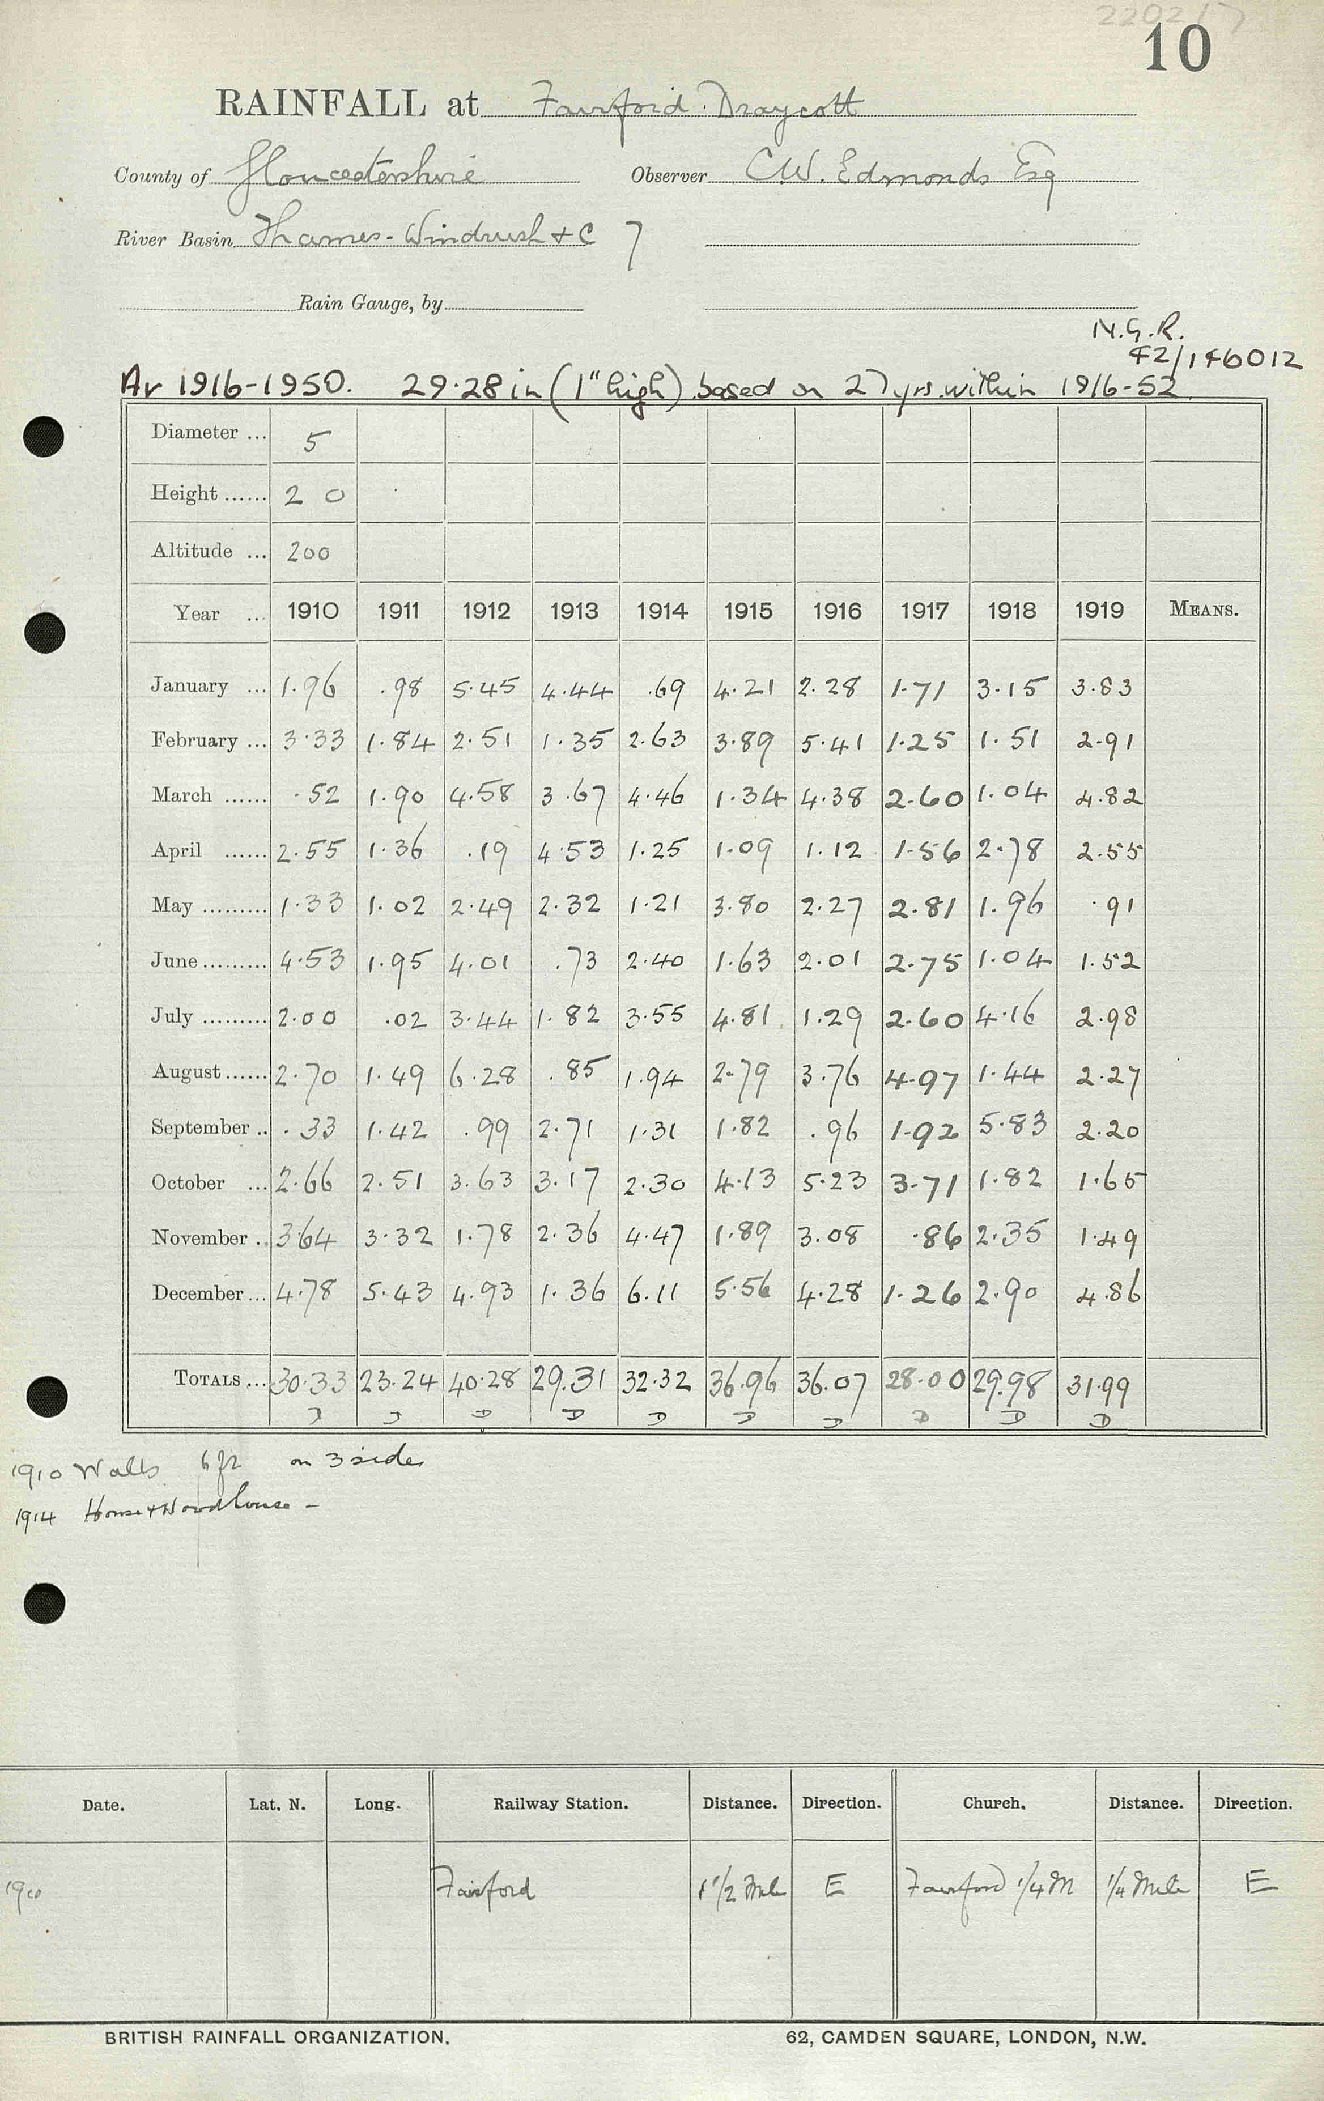 220217
10
RAINFALL at Fairford. Draycott
County of Gloucestershire Observer C.W. Edmonds Esq
River Basin Thames - Windrush + C 7
Rain Gauge, by
N.G.R.
42/146012
Av 1916-1950. 29.28 in (1" high) based on 27 yrs. within 1916-52
Diameter ... 5
Height ...... 2 0
Altitude ... 200
Year ... 1910 1911 1912 1913 1914 1915 1916 1917 1918 1919 MEANS.
January ... 1.96 .98 5.45 4.44 .69 4.21 2.28 1.71 3.15 3.83
February ... 3.33 1.84 2.51 1.35 2.63 3.89 5.41 1.25 1.51 2.91
March ...... .52 1.90 4.58 3.67 4.46 1.34 4.38 2.60 1.04 4.82
April ...... 2.55 1.36 .19 4.53 1.25 1.09 1.12 1.56 2.78 2.55
May ......... 1.33 1.02 2.49 2.32 1.21 3.80 2.27 2.81 1.96 .91
June ......... 4.53 1.95 4.01 .73 2.40 1.63 2.01 2.75 1.04 1.52
July ......... 2.00 .02 3.44 1.82 3.55 4.81 1.29 2.60 4.16 2.98
August ...... 2.70 1.49 6.28 .85 1.94 2.79 3.76 4.97 1.44 2.27
September .. .33 1.42 .99 2.71 1.31 1.82 .96 1.92 5.83 2.20
October ... 2.66 2.51 3.63 3.17 2.30 4.13 5.23 3.71 1.82 1.65
November .. 3.64 3.32 1.78 2.36 4.47 1.89 3.08 .86 2.35 1.49
December ... 4.78 5.43 4.93 1.36 6.11 5.56 4.28 1.26 2.90 4.86
TOTALS ... 30.33 23.24 40.28 29.31 32.32 36.96 36.07 28.00 29.98 31.99
D D D D D D D D D D
1910 Walls 6 ft on 3 sides
1914 House + Woodhouse -
Date. Lat. N. Long. Railway Station. Distance. Direction. Church. Distance. Direction.
1910 Fairford 1 1/2 Mile E Fairford 1/4 M 1/4 Mile E
BRITISH RAINFALL ORGANIZATION. 62, CAMDEN SQUARE, LONDON, N.W.